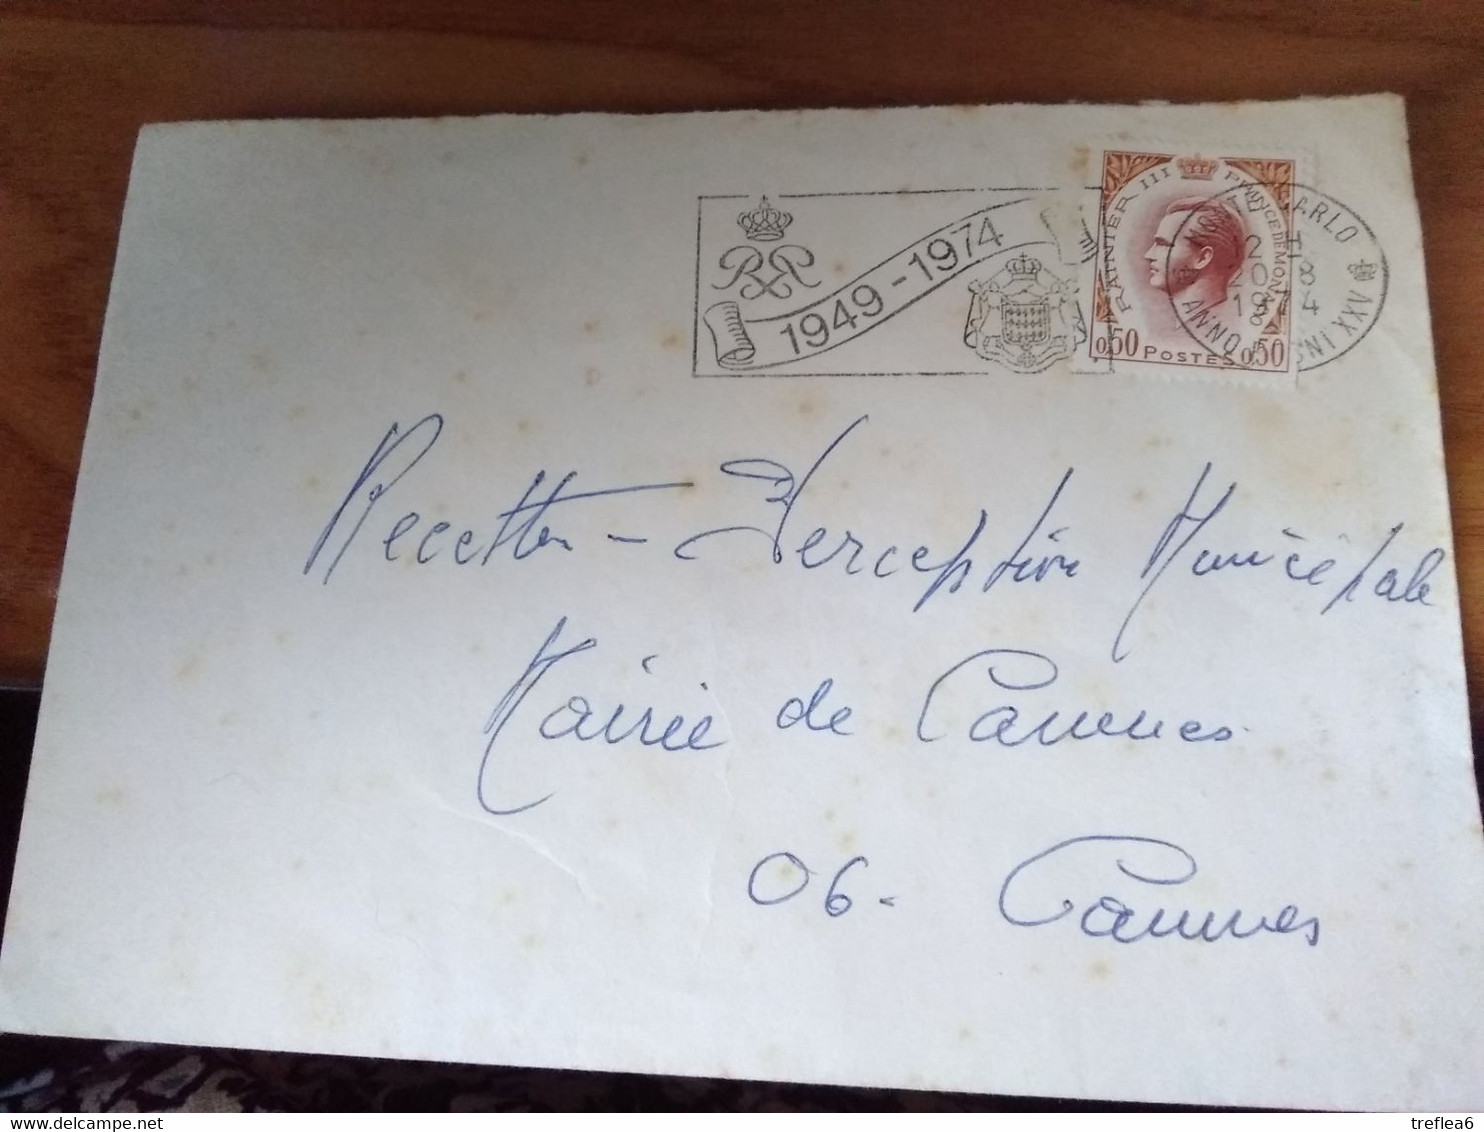 1949-1974
RAINIER III PRINCE DE MONACO
0,50 POSTES 0,50
MONTE CARLO
2 H
20-8
1974
ANNO XXV
Recette-Perception Municipale
Mairie de Cannes
06. Cannes
treflea6